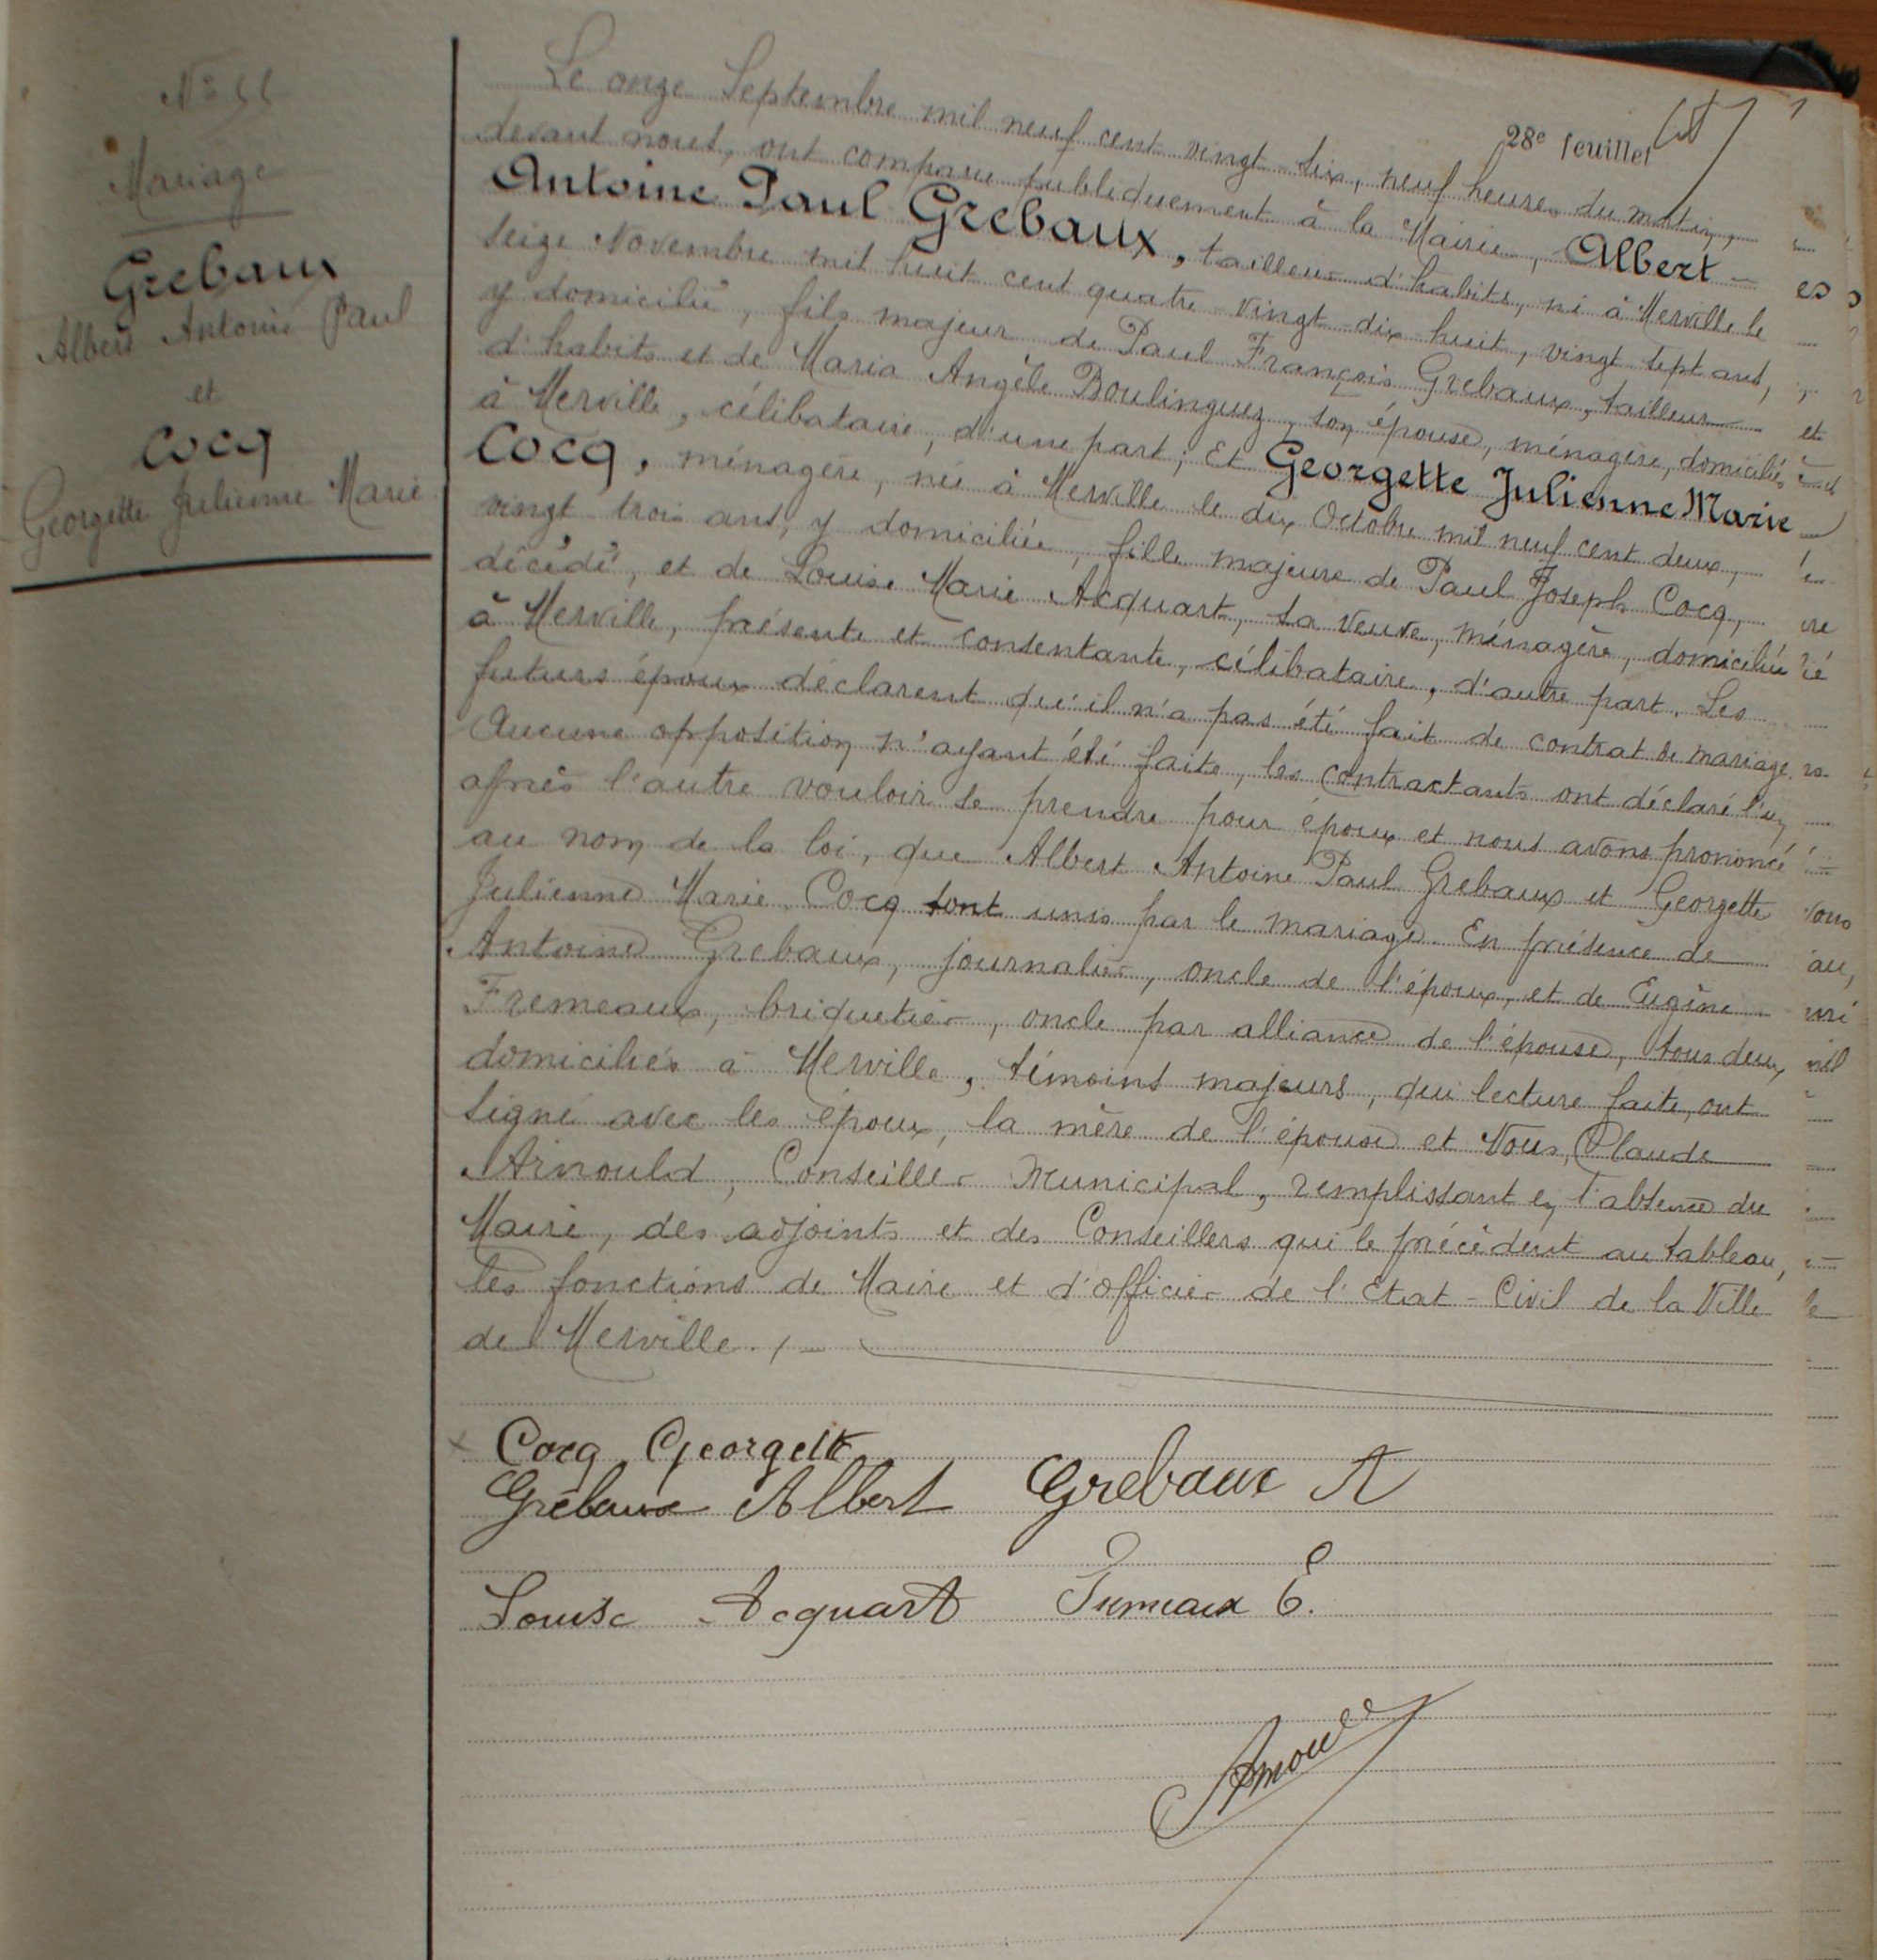 28e feuillet
N° 55
Mariage
Grebaux
Albert Antoine Paul
et
Cocq
Georgette Julienne Marie
Le onze Septembre mil neuf cent vingt-six, neuf heures du matin,
devant nous, ont comparu publiquement à la Mairie, Albert
Antoine Paul Grebaux, tailleur d'habits, né à Merville le
seize Novembre mil huit cent quatre-vingt-dix-huit, vingt sept ans,
y domicilié, fils majeur de Paul François Grebaux, tailleur
d'habits et de Maria Angèle Boulinguez, son épouse, ménagère, domiciliés
à Merville, célibataire, d'une part; Et Georgette Julienne Marie
Cocq, ménagère, née à Merville le dix Octobre mil neuf cent deux,
vingt trois ans, y domiciliée, fille majeure de Paul Joseph Cocq,
décédé, et de Louise Marie Acquart, sa veuve, ménagère, domiciliée
à Merville, présente et consentante, célibataire, d'autre part. Les
futurs époux déclarent qu'il n'a pas été fait de contrat de mariage.
Aucune opposition n'ayant été faite, les contractants ont déclaré l'un
après l'autre vouloir se prendre pour époux et nous avons prononcé
au nom de la loi, que Albert Antoine Paul Grebaux et Georgette
Julienne Marie Cocq sont unis par le mariage. En présence de
Antoine Grebaux, journalier, oncle de l'époux, et de Eugène
Fremeaux, briquetier, oncle par alliance de l'épouse, tous deux
domiciliés à Merville, témoins majeurs, qui lecture faite, ont
signé avec les époux, la mère de l'épouse et Nous, Claude
Arnould, Conseiller Municipal, remplissant en l'absence du
Maire, des adjoints et des Conseillers qui le précèdent au tableau,
les fonctions de Maire et d'officier de l'Etat-Civil de la Ville
de Merville.
Cocq Georgette
Grebaux Albert Grebaux A
Louise Acquart Fremeaux E.
Arnould